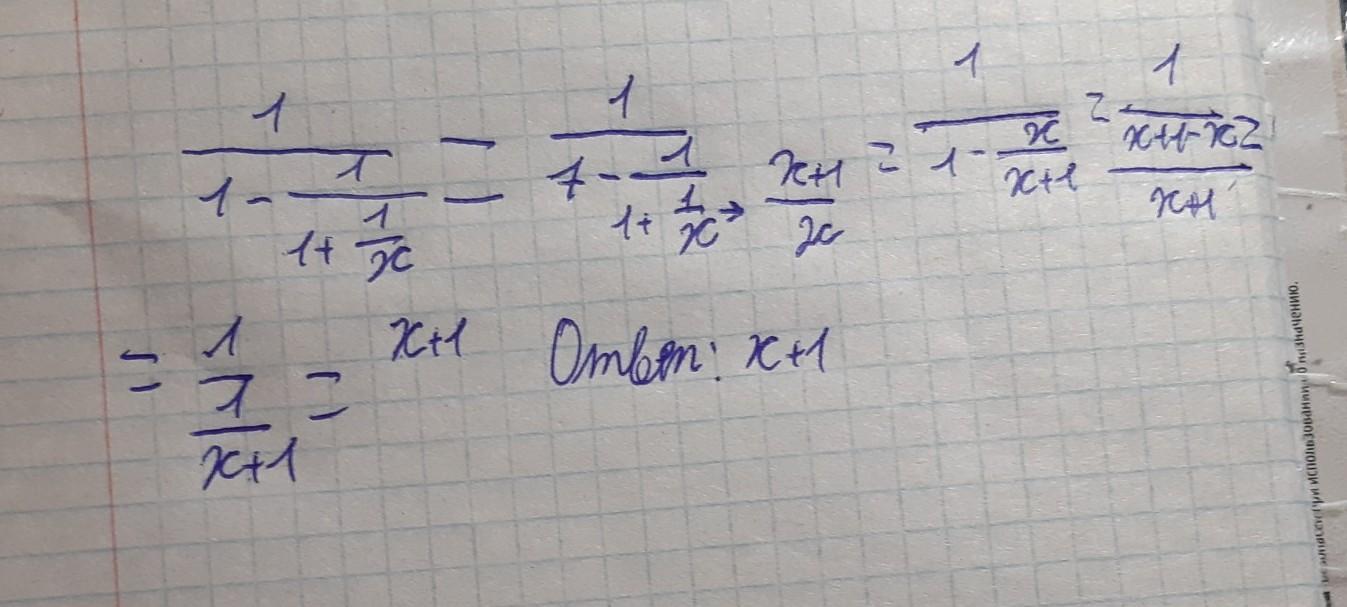 1/(1 - 1/(1 + 1/x)) = 1/(1 - 1/(1 + 1/x)) → (x+1)/x = 1/(1 - x/(x+1)) = 1/((x+1-x)/(x+1)) =
= 1/(1/(x+1)) = x+1 Ответ: x+1
при использовании
о назначению.